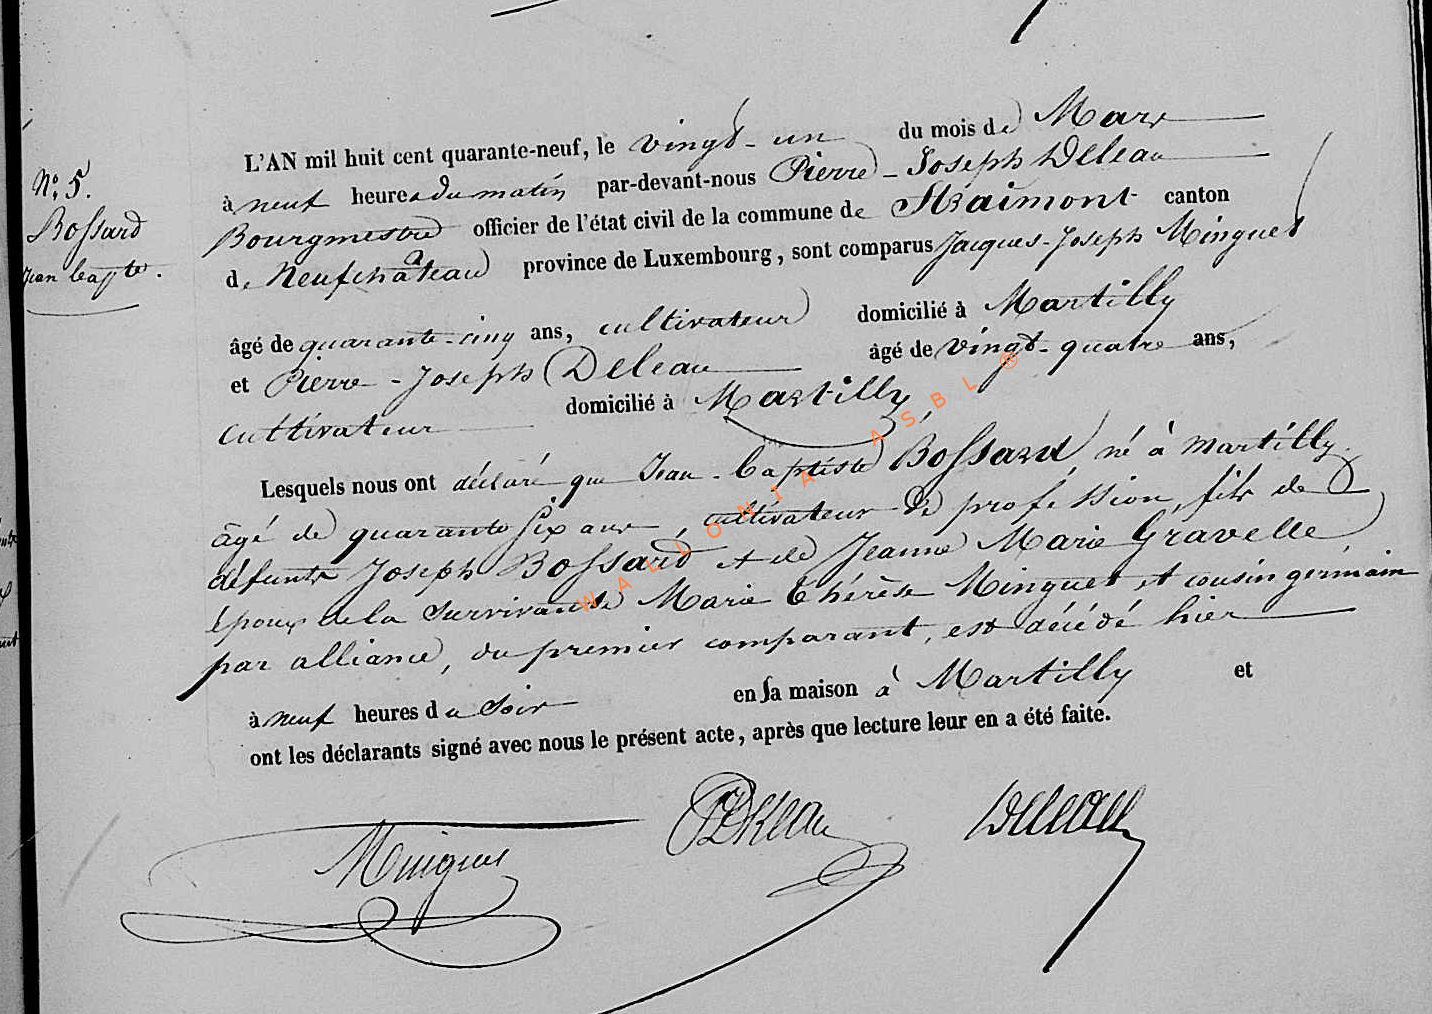 N.° 5.
Bossard
Jean bapte.
L'AN mil huit cent quarante-neuf, le vingt-un du mois de Mars
à neuf heures du matin par-devant-nous Pierre-Joseph Deleau
Bourgmestre officier de l'état civil de la commune de Straimont canton
de Neufchâteau province de Luxembourg, sont comparus Jacques-Joseph Minguet
âgé de quarante-cinq ans, cultivateur domicilié à Martilly
et Pierre-Joseph Deleau âgé de vingt-quatre ans,
cultivateur domicilié à Martilly,
Lesquels nous ont déclaré que Jean-baptiste Bossard né à Martilly
âgé de quarante six ans, cultivateur de profession, fils de
défunts Joseph Bossard et de Jeanne Marie Gravelle,
époux de la survivante Marie thérèse Minguet et cousin germain
par alliance, du premier comparant, est décédé hier
à neuf heures du soir en sa maison à Martilly et
ont les déclarants signé avec nous le présent acte, après que lecture leur en a été faite.
Minguet PJDeleau Deleau
WALLONIA ASBL ®